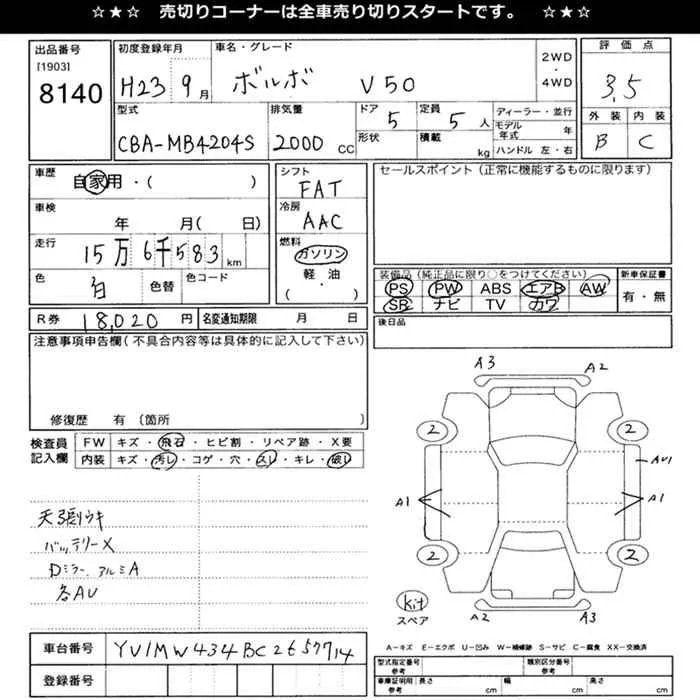 ☆★☆ 売切りコーナーは全車売り切りスタートです。 ☆★☆
出品番号
[1903]
8140
初度登録年月
H23 9月
車名・グレード
ボルボ V50
2WD
・
4WD
評価点
3.5
外装 内装
B C
型式
CBA-MB4204S
排気量
2000 CC
ドア
5
形状
定員
5人
積載
kg
ディーラー・並行
モデル年式 年
ハンドル 左・右
車歴
自家用・( )
車検
年 月( 日)
走行
15万6千583km
色
白
色替
色コード
シフト
FAT
冷房
AAC
燃料
ガソリン
軽・油
( ・ )
セールスポイント(正常に機能するものに限ります)
装備品(純正品に限り○をつけてください)
PS PW ABS エアB AW
SR ナビ TV カワ
新車保証書
有・無
R券 18,020円
名変通知期限 月 日
後日品
注意事項申告欄(不具合内容等は具体的に記入して下さい)
修復歴 有(箇所 )
検査員記入欄
FW キズ・飛石・ヒビ割・リペア跡・X要
内装 キズ・汚レ・コゲ・穴・スレ・キレ・破レ
天張ウキ
バッテリーX
Dミラー、アルミA
各AU
A3 A2
2 2
AU1
A1 A1
2 2
kit
スペア
A2 A3
A−キズ E−エクボ U−凹み W−補修跡 S−サビ C−腐食 XX−交換済
車台番号
YV1MW434BC2657714
登録番号
型式指定番号
参考
類別区分番号
参考
車庫証明用
参考
長さ cm
幅 cm
高さ cm